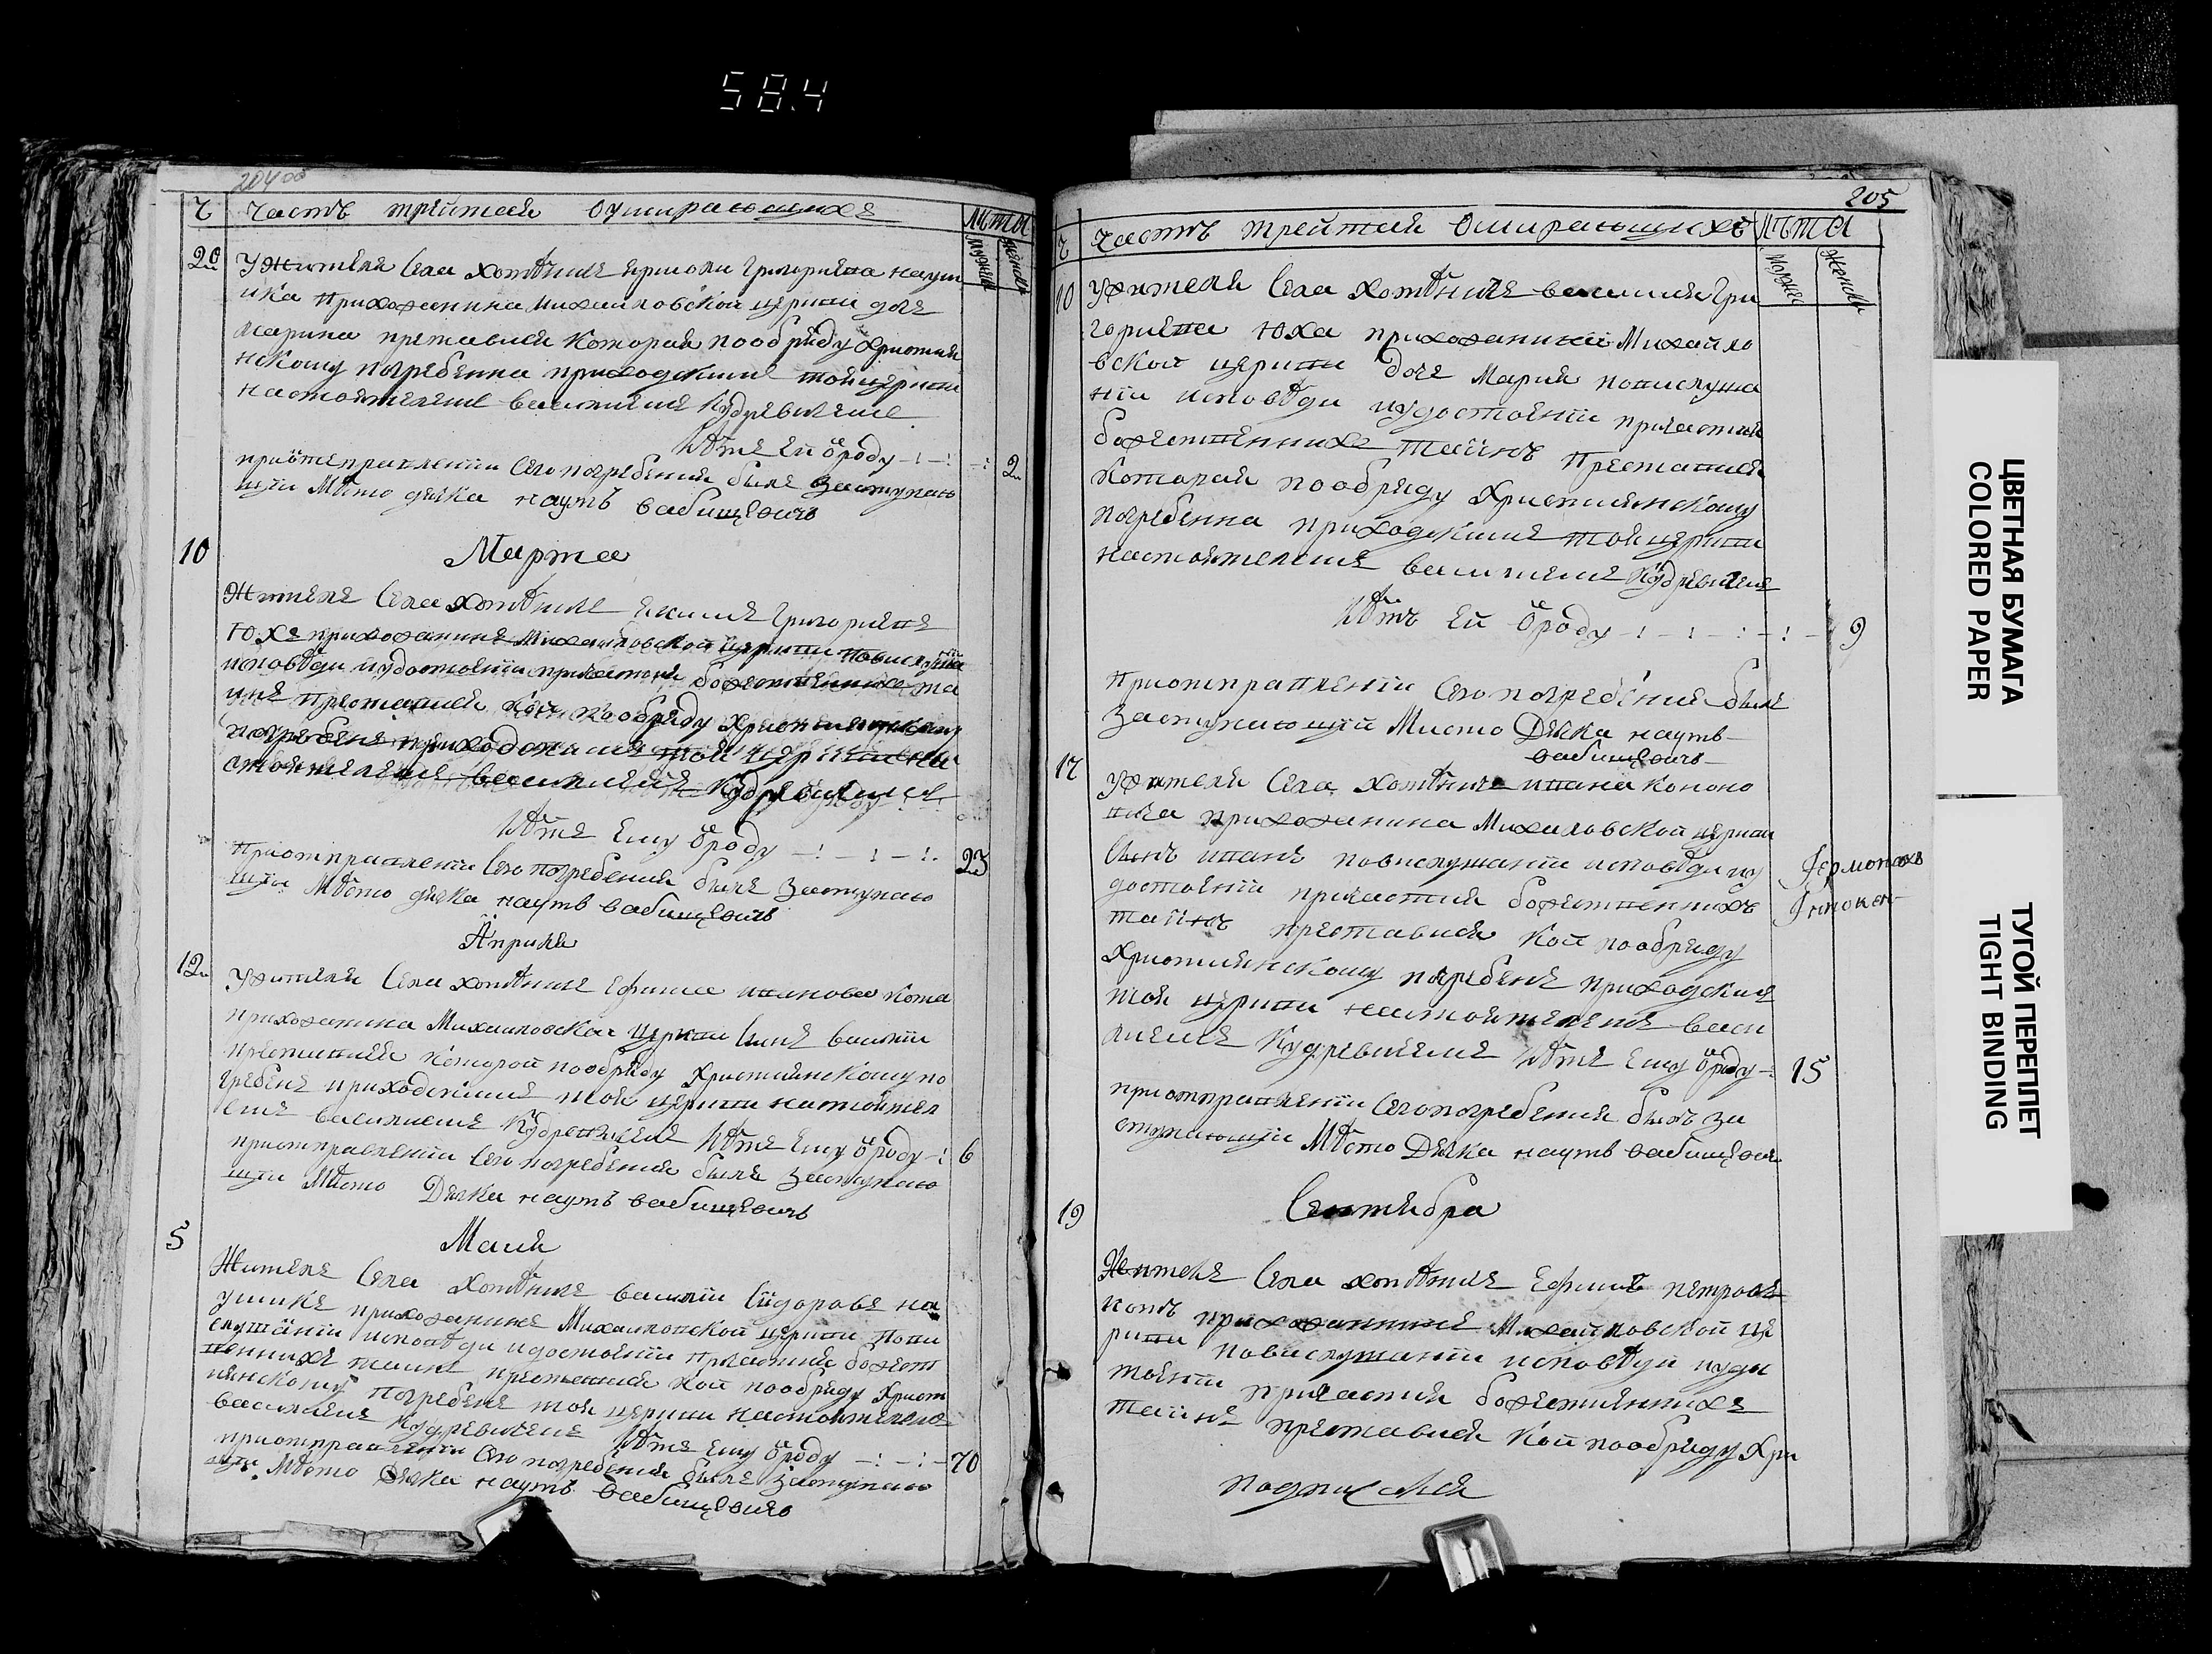 58.4
204 об
Ч Часть третая Оумирающихъ лѣта
мужеск женск
20 У жителя Села хотѣнилъ Ермоли Григориева наум
ика прихожанина михаиловской церкви дочь
марина преставися которая пообряду христия
нскому погребенна приходскимъ тоя церкви
настоятелемъ василиемъ Кудревичемъ
лѣтъ Ей ѿроду -:-:-: 2
приѿправлении Сего погребения былъ заступаю
щїи мѣсто дяка наумъ вабищевичъ
10 Марта
Житель Села хотѣнилъ Григориевъ
Юхъ прихожанинъ михаиловской церкви повислуша
исповѣди иудостоении причастия божественнихъ та
инъ преставися кои пообряду християнскому
погребенъ приходскимъ тоя церкви на
стоятелемъ василиемъ Кудревичемъ
лѣтъ Ему ѿроду -:-:-:. 23
Приотправлении Сего погребения былъ заступаю
щїи мѣсто дяка наумъ вабищевичъ
Априля
12 У жителя Села хотѣнилъ Ефима иванова кота
прихожанина Михаиловской церкви Синъ василїи
преставися которой пообряду християнскому по
гребенъ приходскимъ тоя церкви настоятел
емъ василиемъ Кудревичемъ лѣтъ Ему ѿроду -: 6
приотправлении Сего погребения былъ заступаю
щїи мѣсто Дяка наумъ вабищевичъ
5 Маия
Житель Села хотѣнилъ василїи Сидоровъ на
умикъ прихожанинъ Михаиловской церкви пови
слушанїи исповѣди идостоенїи причастия божест
веннихъ таинъ преставися кои пообряду христ
иянскому погребенъ тоя церкви настоятелемъ
василиемъ Кудревичемъ лѣтъ Ему ѿроду -:-:- 70
приотправлении Сего погребения былъ заступаю
щїи мѣсто Дяка наумъ вабищевичъ
205
Ч Часть третая Оумирающихъ лѣта
мужес женск
10 У жителя Села хотѣнилъ василия Гри
гориева Юха прихожанина Михайло
вской церкви дочь Мария повислуша
нїи исповѣди иудостоенїи причастия
божественнихъ таинъ преставися
которая пообряду християнскому
погребенна приходскимъ тоя церкви
настоятелемъ василиемъ Кудревичемъ
лѣтъ Ей ѿроду -:-:-:-:- 9
приотправлении Сего погребения былъ
заступающїй мисто Дяка наумъ
вабищевичъ
17 У жителя Села хотѣнилъ ивана Кононо
вича прихожанина Михаиловской церкви
Синъ иванъ повислушании исповѣди иу
достоенїи причастия божественнихъ
таинъ преставися кои пообряду
християнскому погребенъ приходским
тоя церкви настоятелемъ васи
лиемъ Кудревичемъ лѣтъ Ему ѿроду -: 15
приотправлении Сего погребения былъ за
ступающїи мѣсто Дяка наумъ вабищевич
Іермонахъ
Іннокен-
19 Сентября
Житель Села хотѣнилъ Ефимъ петровъ
котъ прихожанинъ Михайловской це
ркви повислушанїи исповѣди иудос
тоенїи причастия божественнихъ
таинъ преставися кои пообряду хри
ЦВЕТНАЯ БУМАГА
COLORED PAPER
ТУГОЙ ПЕРЕПЛЕТ
TIGHT BINDING